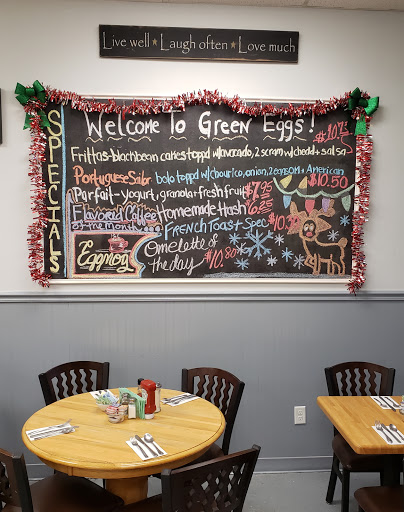 Live well ★ Laugh often ★ Love much
SPECIALS
Welcome To Green Eggs!
Frittas - blackbean cakes toppd w/avocado, 2 scram w/chedd + salsa -
Portuguese Sailor bolo toppd w/chourico, onion, 2 eggs OM + American $10.50
Parfait - yogurt, granola + fresh fruit $7.95
Flavored Coffee of the Month...
Homemade Hash $6.25
Eggnog
FRENCH Toast - Spec
Omelette of the day $10.80